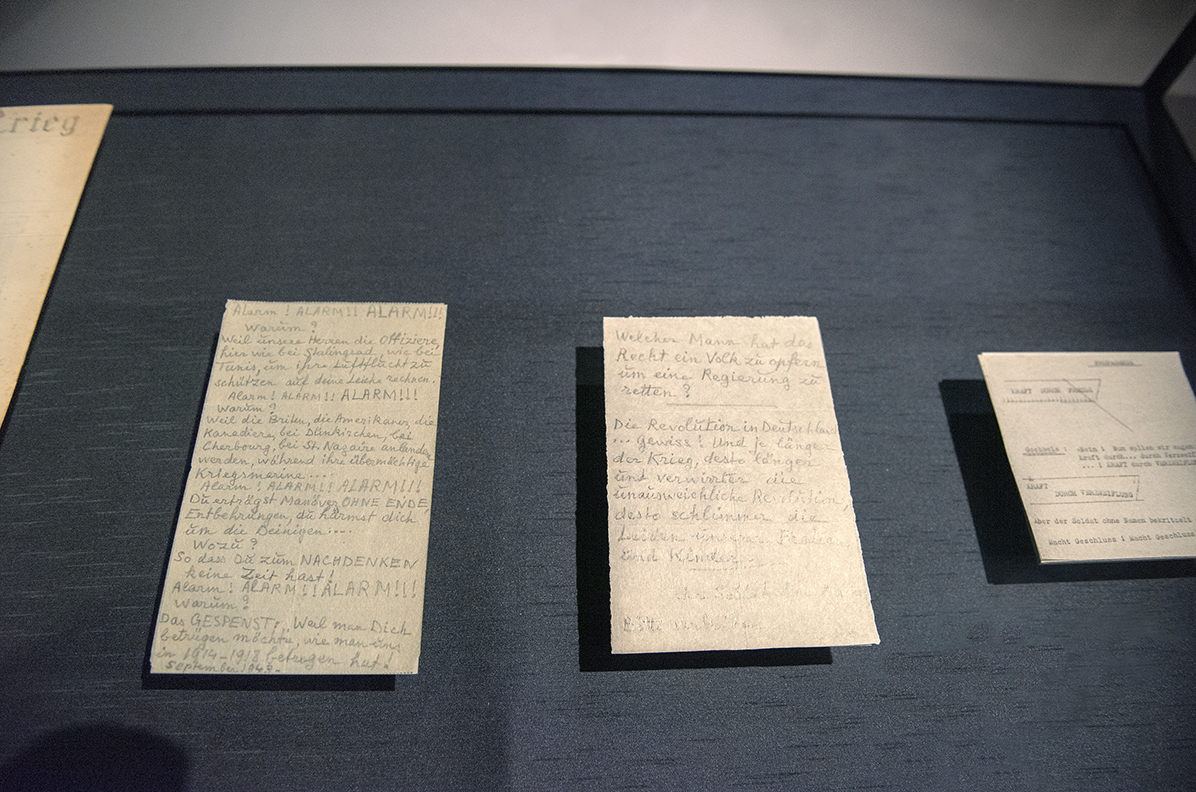 Krieg
Alarm ! ALARM!! ALARM!!!
Warum ?
Weil unsere Herren die Offiziere,
hier wie bei Stalingrad, wie bei
Tunis, um ihre Luftflucht zu
schützen auf deine Leiche rechnen.
Alarm! ALARM!! ALARM!!!
Warum ?
Weil die Briten, die Amerikaner, die
Kanadiere, bei Dünkirchen, bei
Cherbourg, bei St. Nazaire anlanden
werden, während ihre übermächtige
Kriegsmarine...
Alarm ! ALARM!! ALARM!!!
Du erträgst Manöver OHNE ENDE,
Entbehrungen, du härmst dich
um die Deinigen...
Wozu ?
So dass Du zum NACHDENKEN
keine Zeit hast !
Alarm! ALARM!! ALARM!!!
Warum ?
Das GESPENST: „Weil man Dich
betrügen möchte, wie man uns
in 1914-1918 betrogen hat !
September 1943-
Welcher Mann hat das
Recht ein Volk zu opfern
um eine Regierung zu
retten ?
Die Revolution in Deutschland
... gewiss ! Und je länger
der Krieg, desto länger
und verwirrter die
unausweichliche Revolution,
desto schlimmer die
Leiden unserer Frauen
und Kinder...
Bitte
KRAFT DURCH FREUDE
Goebbels : nun wollen wir sagen
Kraft durch... durch
... ! KRAFT durch VERZWEIFLUNG
KRAFT
DURCH VERZWEIFLUNG
Aber der Soldat ohne Namen bekritzelt
Macht Geschluss ! Macht Geschluss